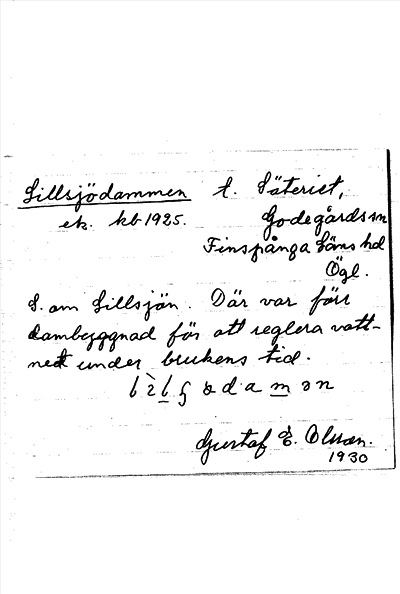 Lillsjödammen t. Säteriet,
ek. kb 1925. Godegårds sn
Finspånga läns hd
Ögl.
S. om Lillsjön. Där var förr
dambyggnad för att reglera vatt-
net under brukens tid.
Gustaf E. Olsson.
1930